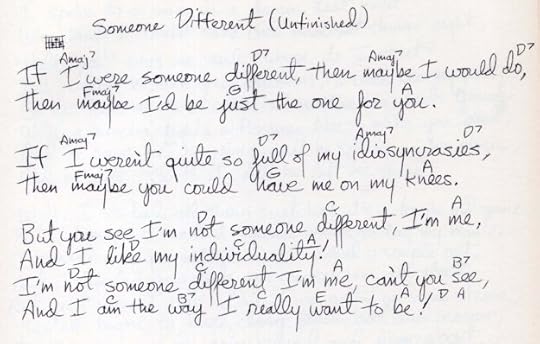 Someone Different (Unfinished)
Amaj7 D7 Amaj7 D7
If I were someone different, then maybe I would do,
Fmaj7 G A
then maybe I'd be just the one for you.
Amaj7 D7 Amaj7 D7
If I weren't quite so full of my idiosyncrasies,
Fmaj7 G A
then maybe you could have me on my knees.
D C
But you see I'm not someone different, I'm me,
D C A
And I like my individuality!
D C A B7
I'm not someone different I'm me, can't you see,
C B7 C E A D A
And I am the way I really want to be!